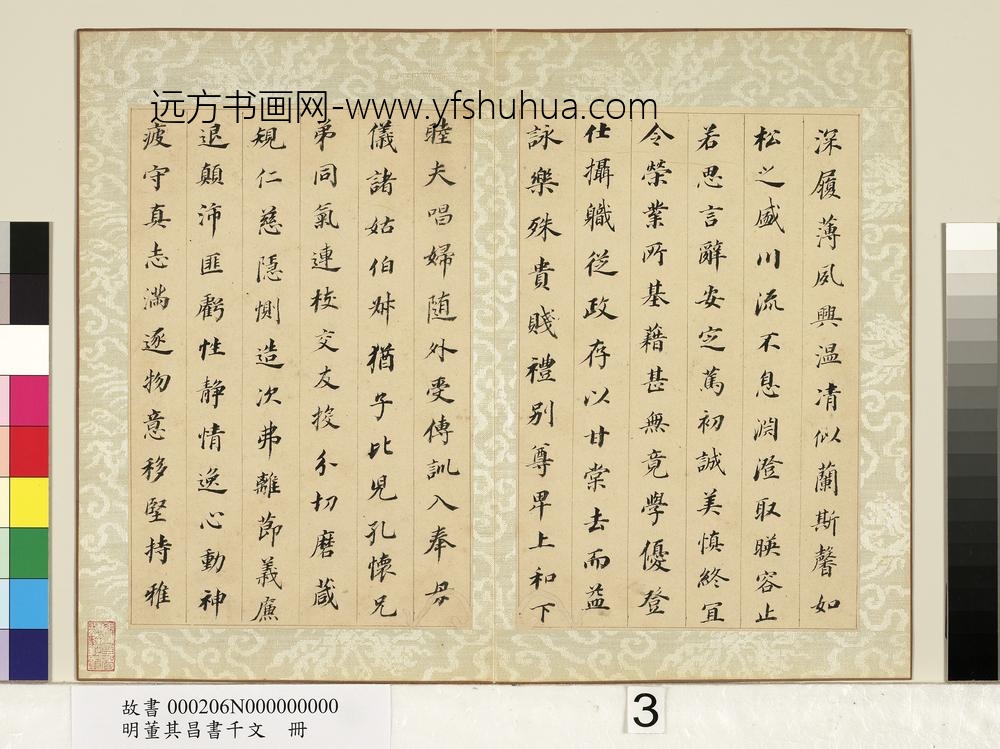 远方书画网-www.yfshuhua.com
深履薄夙興温凊似蘭斯馨如
松之盛川流不息淵澄取暎容止
若思言辭安定篤初誠美慎終宜
令榮業所基藉甚無竟學優登
仕攝職從政存以甘棠去而益
詠樂殊貴賤禮别尊卑上和下
睦夫唱婦随外受傅訓入奉母
儀諸姑伯叔猶子比兒孔懷兄
弟同氣連枝交友投分切磨葴
規仁慈隱惻造次弗離節義廉
退顛沛匪虧性静情逸心動神
疲守真志满逐物意移堅持雅
故書 000206N000000000
明董其昌書千文 冊
3